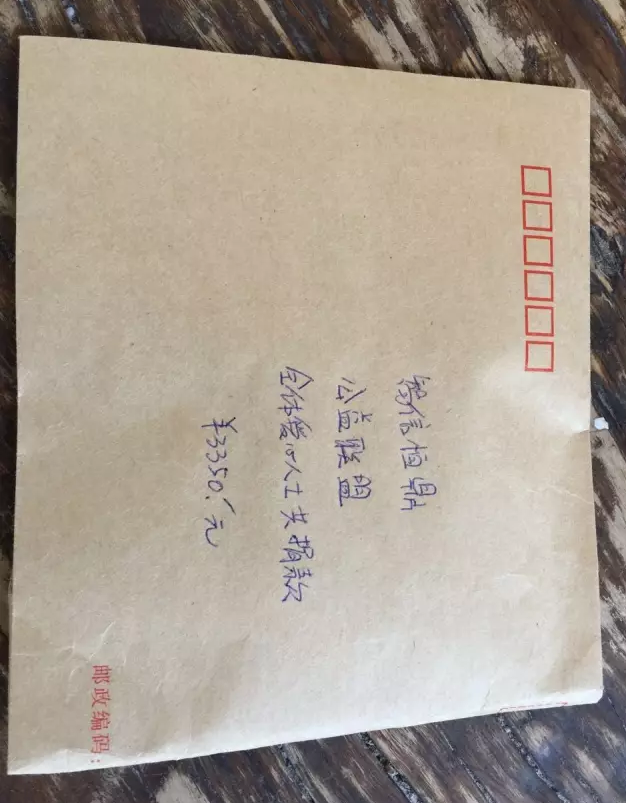 智信恒鼎
公益联盟
全体爱心人士共捐款
¥3350.元
邮政编码: